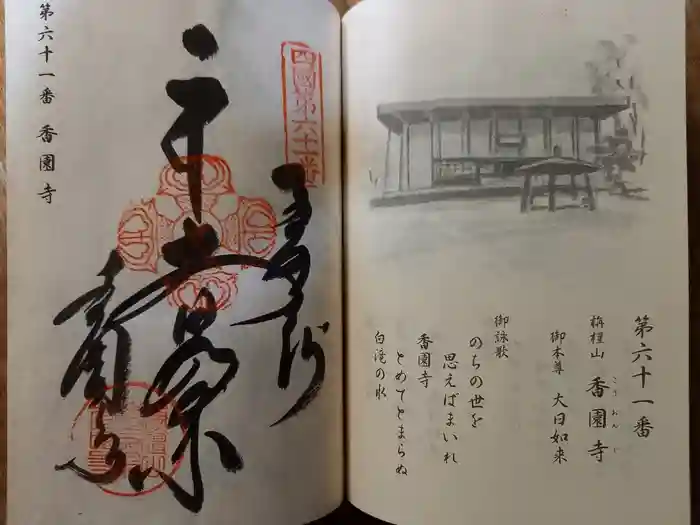 第六十一番
栴檀山 香園寺
こうおんじ
御本尊 大日如来
御詠歌
のちの世を
思えばまいれ
香園寺
とめてとまらぬ
白滝の水
四國第六十一番
奉納
大日如来
香園寺
第六十一番 香園寺